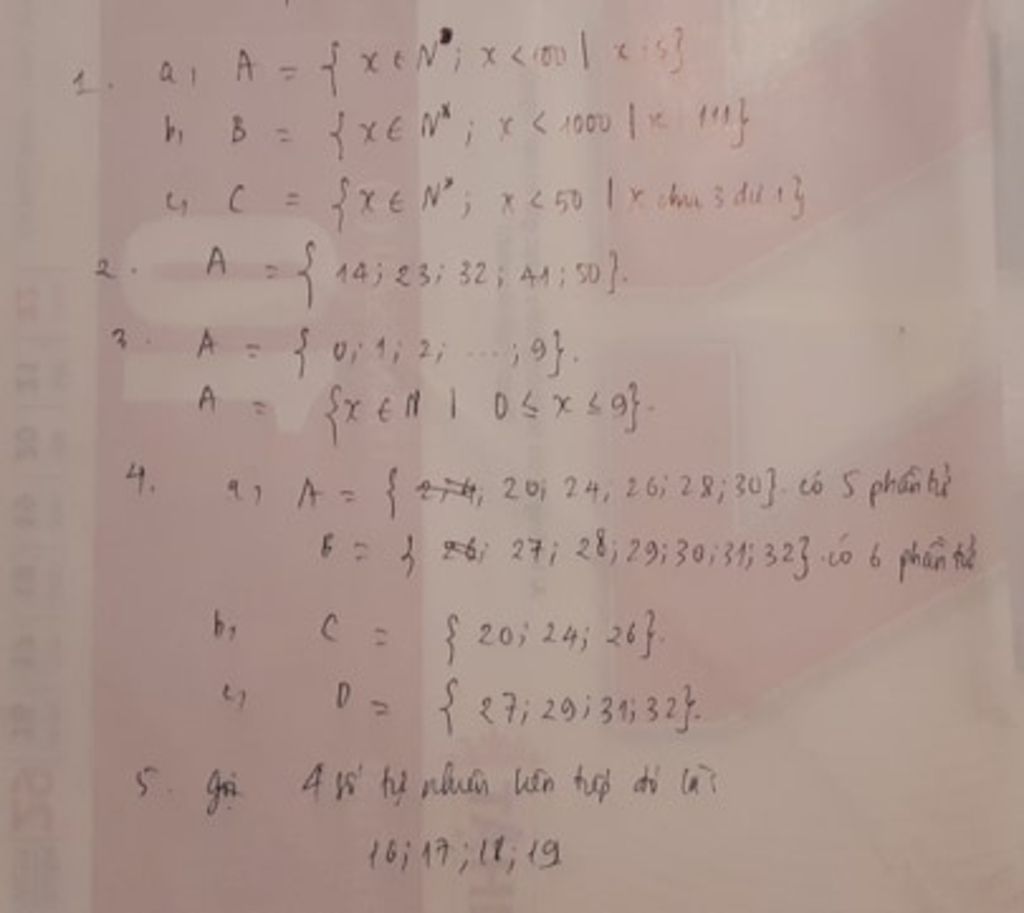 1. a, A = { x ∈ N*; x < 100 | x ⋮ 5}
b, B = {x ∈ N*; x < 1000 | x ⋮ 111}
c, C = {x ∈ N*; x < 50 | x chia 3 dư 1}
2. A = { 14; 23; 32; 41; 50}.
3. A = { 0; 1; 2; ...; 9}.
A = {x ∈ N | 0 ≤ x ≤ 9}.
4. a, A = { 20; 24, 26; 28; 30}. có 5 phần tử
B = { 27; 28; 29; 30; 31; 32}. có 6 phần tử
b, C = { 20; 24; 26}.
c, D = { 27; 29; 31; 32}.
5. gọi 4 số tự nhiên liên tiếp đó là:
16; 17; 18; 19